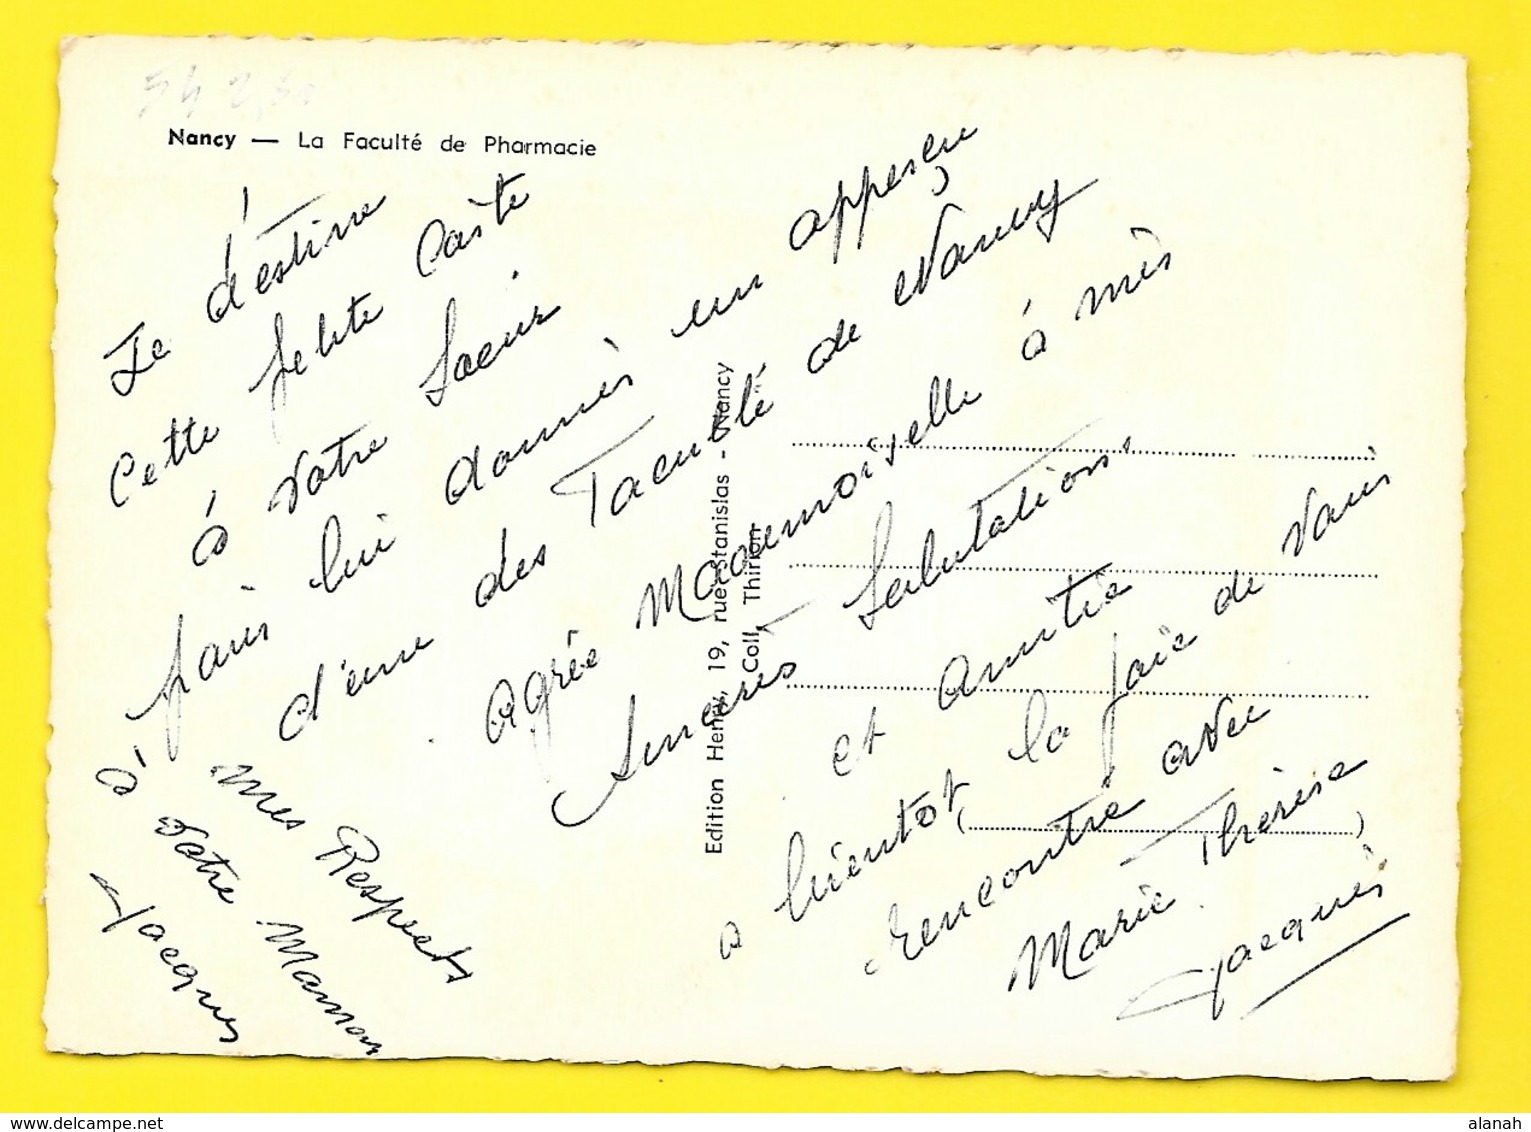 54 2,30
Nancy — La Faculté de Pharmacie
Je déstine
cette petite Carte
à votre Soeur
pour lui donnés un apperçu
d'une des Faculté de Nancy
Agrée Mademoiselle à mès
sincerès Salutations
et amitié
a bientot la joïe de vous
rencontre avec
Marie. Thérèse
Jacques
mes Respects
à Votre Maman
Jacques
Edition Henry, 19, rue Stanislas - Nancy
Coll. Thiriot
( )
delcampe.net
alanah